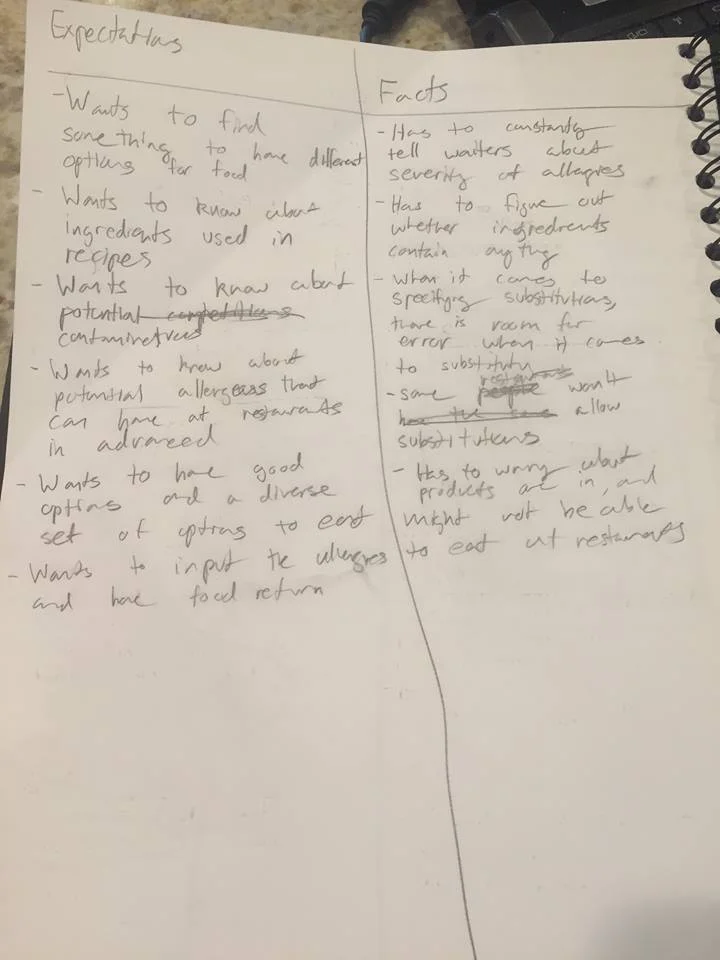 Expectations
- Wants to find
something to have different
options for food
- Wants to know about
ingredients used in
recipes
- Wants to know about
potential
- Wants to know about
potential allergens that
can have at restaurants
in advanced
- Wants to have good
options and a diverse
set of options to eat
- Wants to input the allergies
and have food return
Facts
- Has to constantly
tell waiters about
severity of allergies
- Has to figure out
whether ingredients
contain anything
- When it comes to
specifying substitutions,
there is room for
error when it comes
to substitutn
restaurants
- some people won't
allow
substitutions
- Has to worry about
products are in, and
might not be able
to eat at restaurants